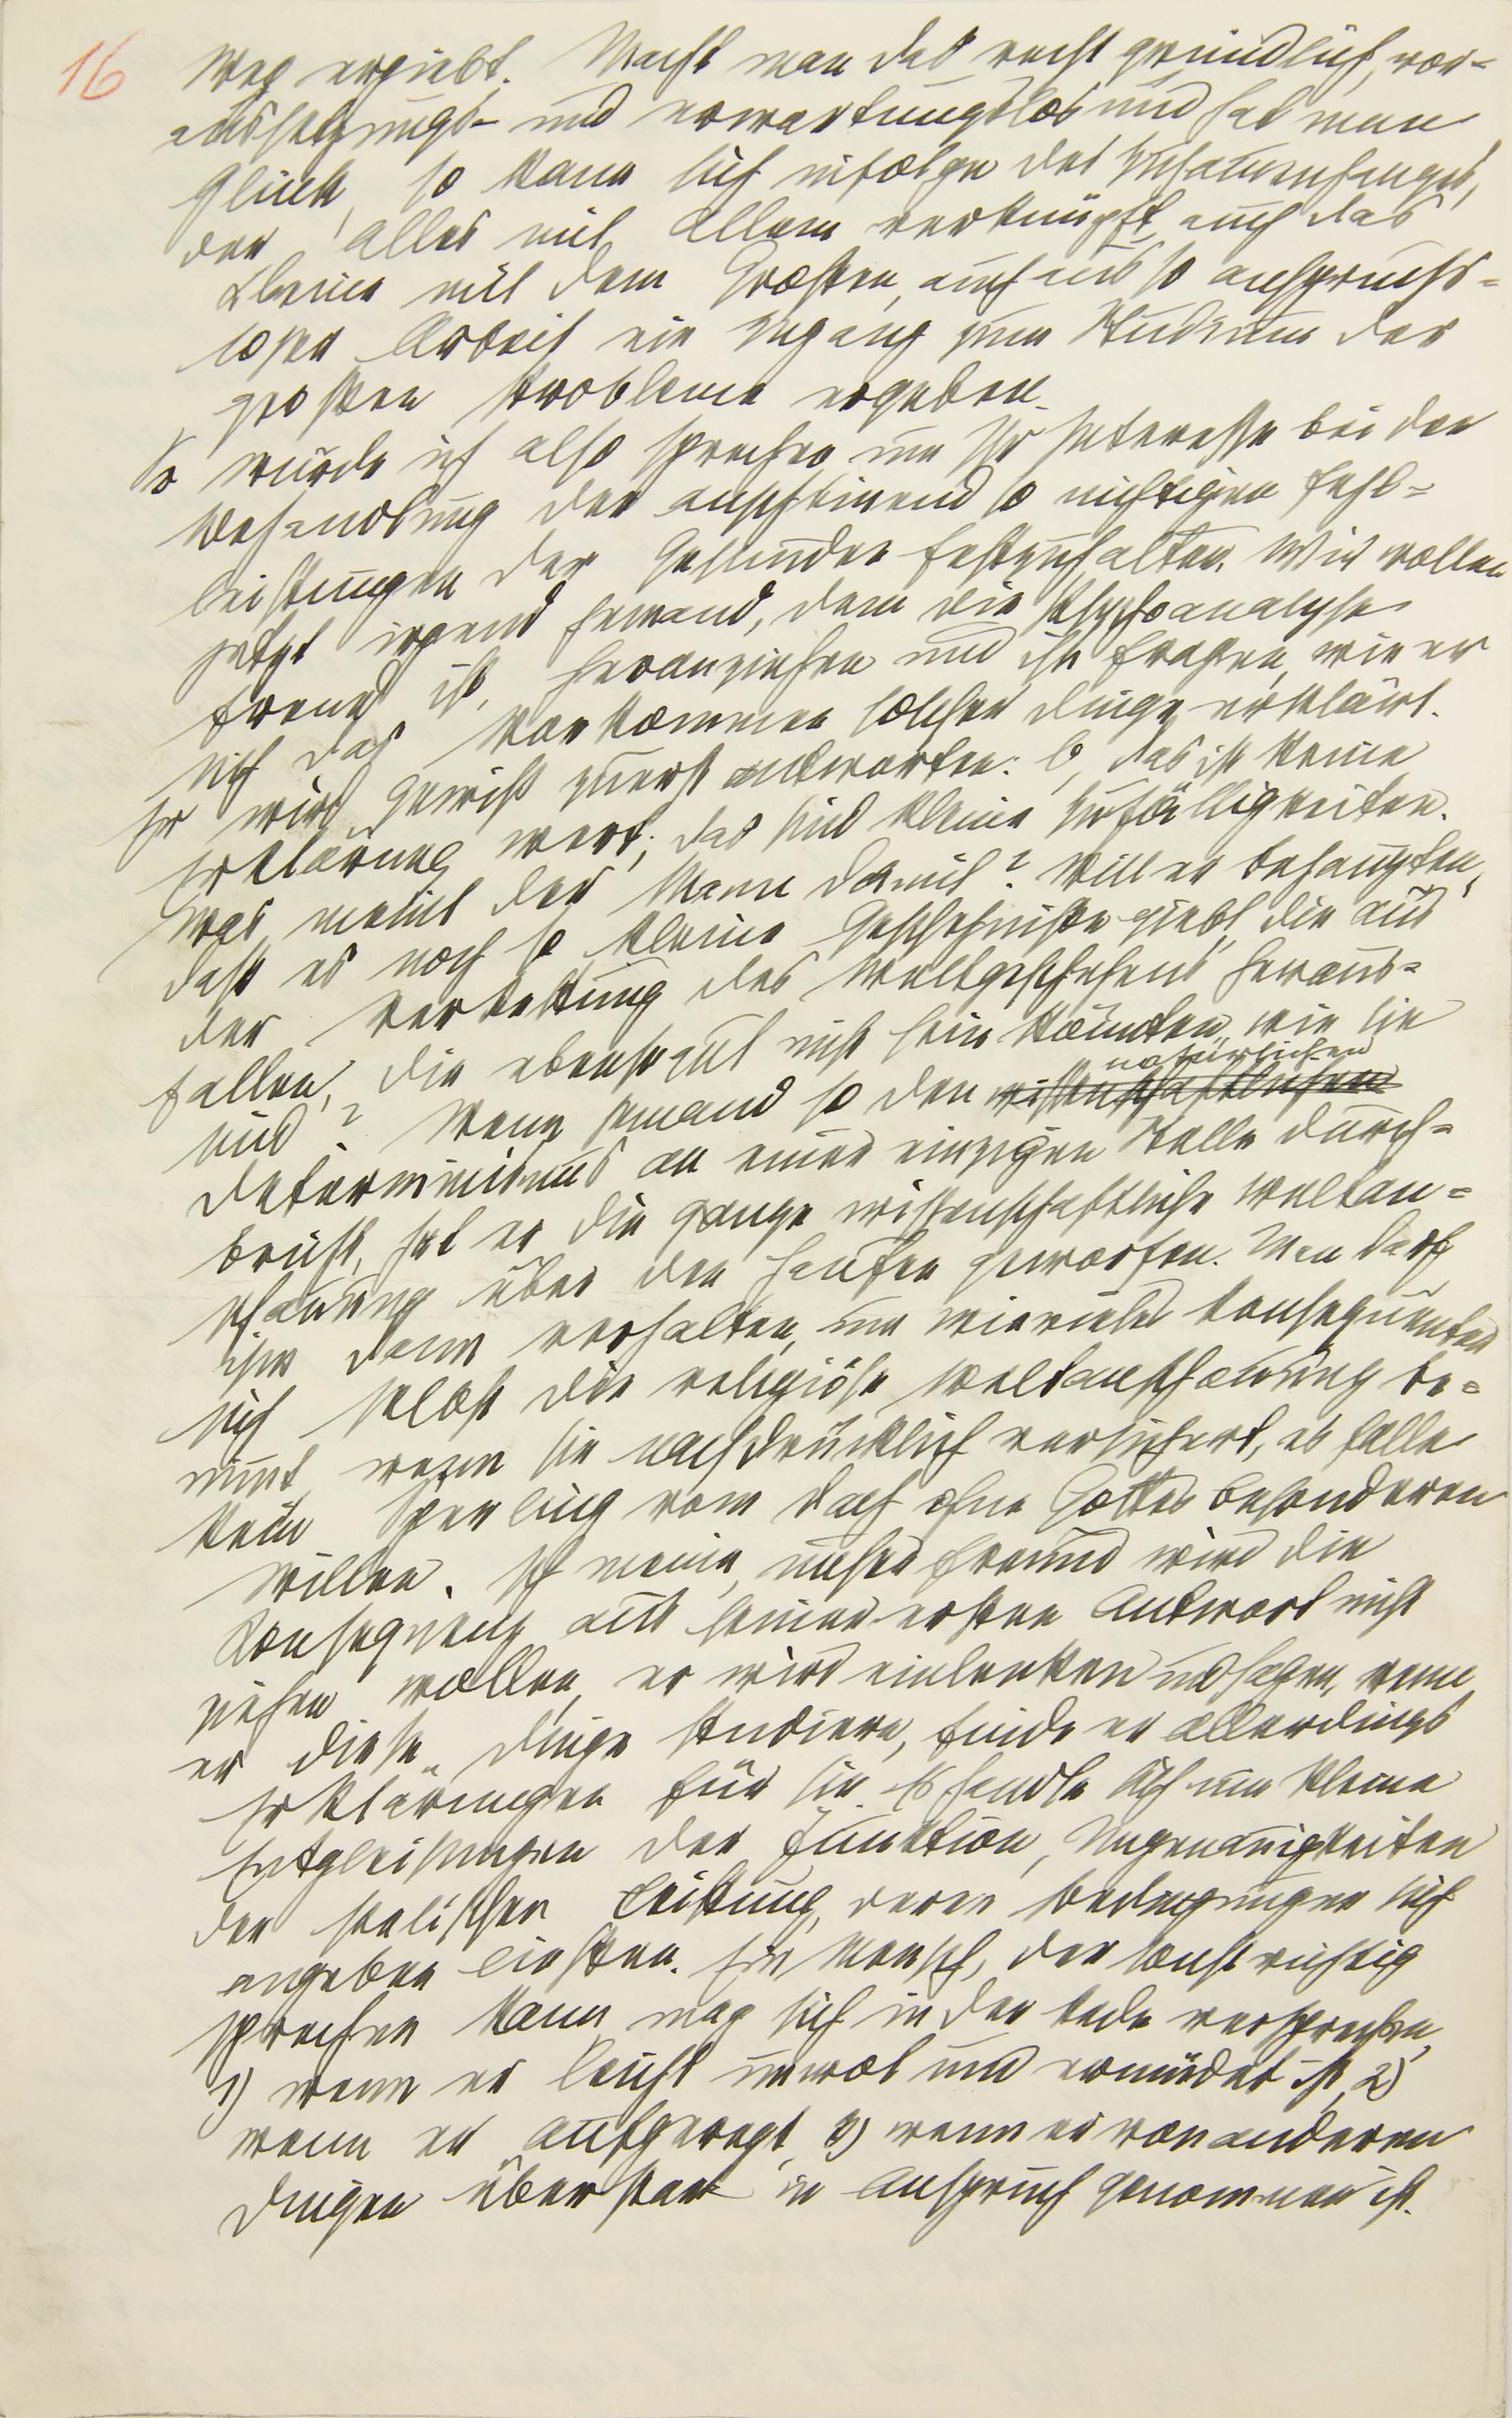 16
Weg ergiebt. Macht man das recht gründlich, vor-
aussetzungs- und erwartungslos und hat man
Glück, so kann sich infolge des Zusammenhanges,
der Alles mit Allem verknüpft, auch das
Kleine mit dem Großen, auch aus so anspruchs-
loser Arbeit ein Zugang zum Studium der
großen Probleme ergeben.
So würde ich also sprechen, um Ihr Interesse bei der
Behandlung der anscheinend so nichtigen Fehl-
leistungen der Gesunden festzuhalten. Wir wollen
jetzt irgend jemand, dem die Psychoanalyse
fremd ist, heranziehen und ihn fragen, wie er
sich das Vorkommen solcher Dinge erklärt.
Er wird gewiß zuerst antworten: O, das ist keine
Erklärung wert; das sind kleine Zufälligkeiten.
Was meint der Mann damit? Will er behaupten,
daß es noch so kleine Geschehniße giebt, die aus
der Verkettung des Weltgeschehens heraus-
fallen, die ebensogut nicht sein könnten, wie sie
natürlichen
sind? Wenn jemand so den wissenschaftlichen
Determinismus an einer einzigen Stelle durch-
bricht, hat er die ganze wissenschaftliche Weltan-
schauung über den Haufen geworfen. Man darf
ihm dann vorhalten, um wieviel konsequenter
sich selbst die religiöse Weltanschauung be-
nimt, wenn sie nachdrücklich versichert, es falle
kein Sperling vom Dach ohne Gottes besonderen
Willen. Ich meine, unser Freund wird die
Konsequenz aus seiner ersten Antwort nicht
ziehen wollen, er wird einlenken und sagen, wenn
er diese Dinge studiere, finde er allerdings
Erklärungen für sie. Es handle sich um kleine
Entgleisungen der Funktion, Ungenauigkeiten
der seelischen Leistung, deren Bedingungen sich
angeben ließen. Ein Mensch, der sonst richtig
sprechen kann, mag sich in der Rede versprechen,
1) wenn er leicht unwol und ermüdet ist, 2)
wenn er aufgeregt, 3) wenn er von anderen
Dingen überstark in Anspruch genommen ist.